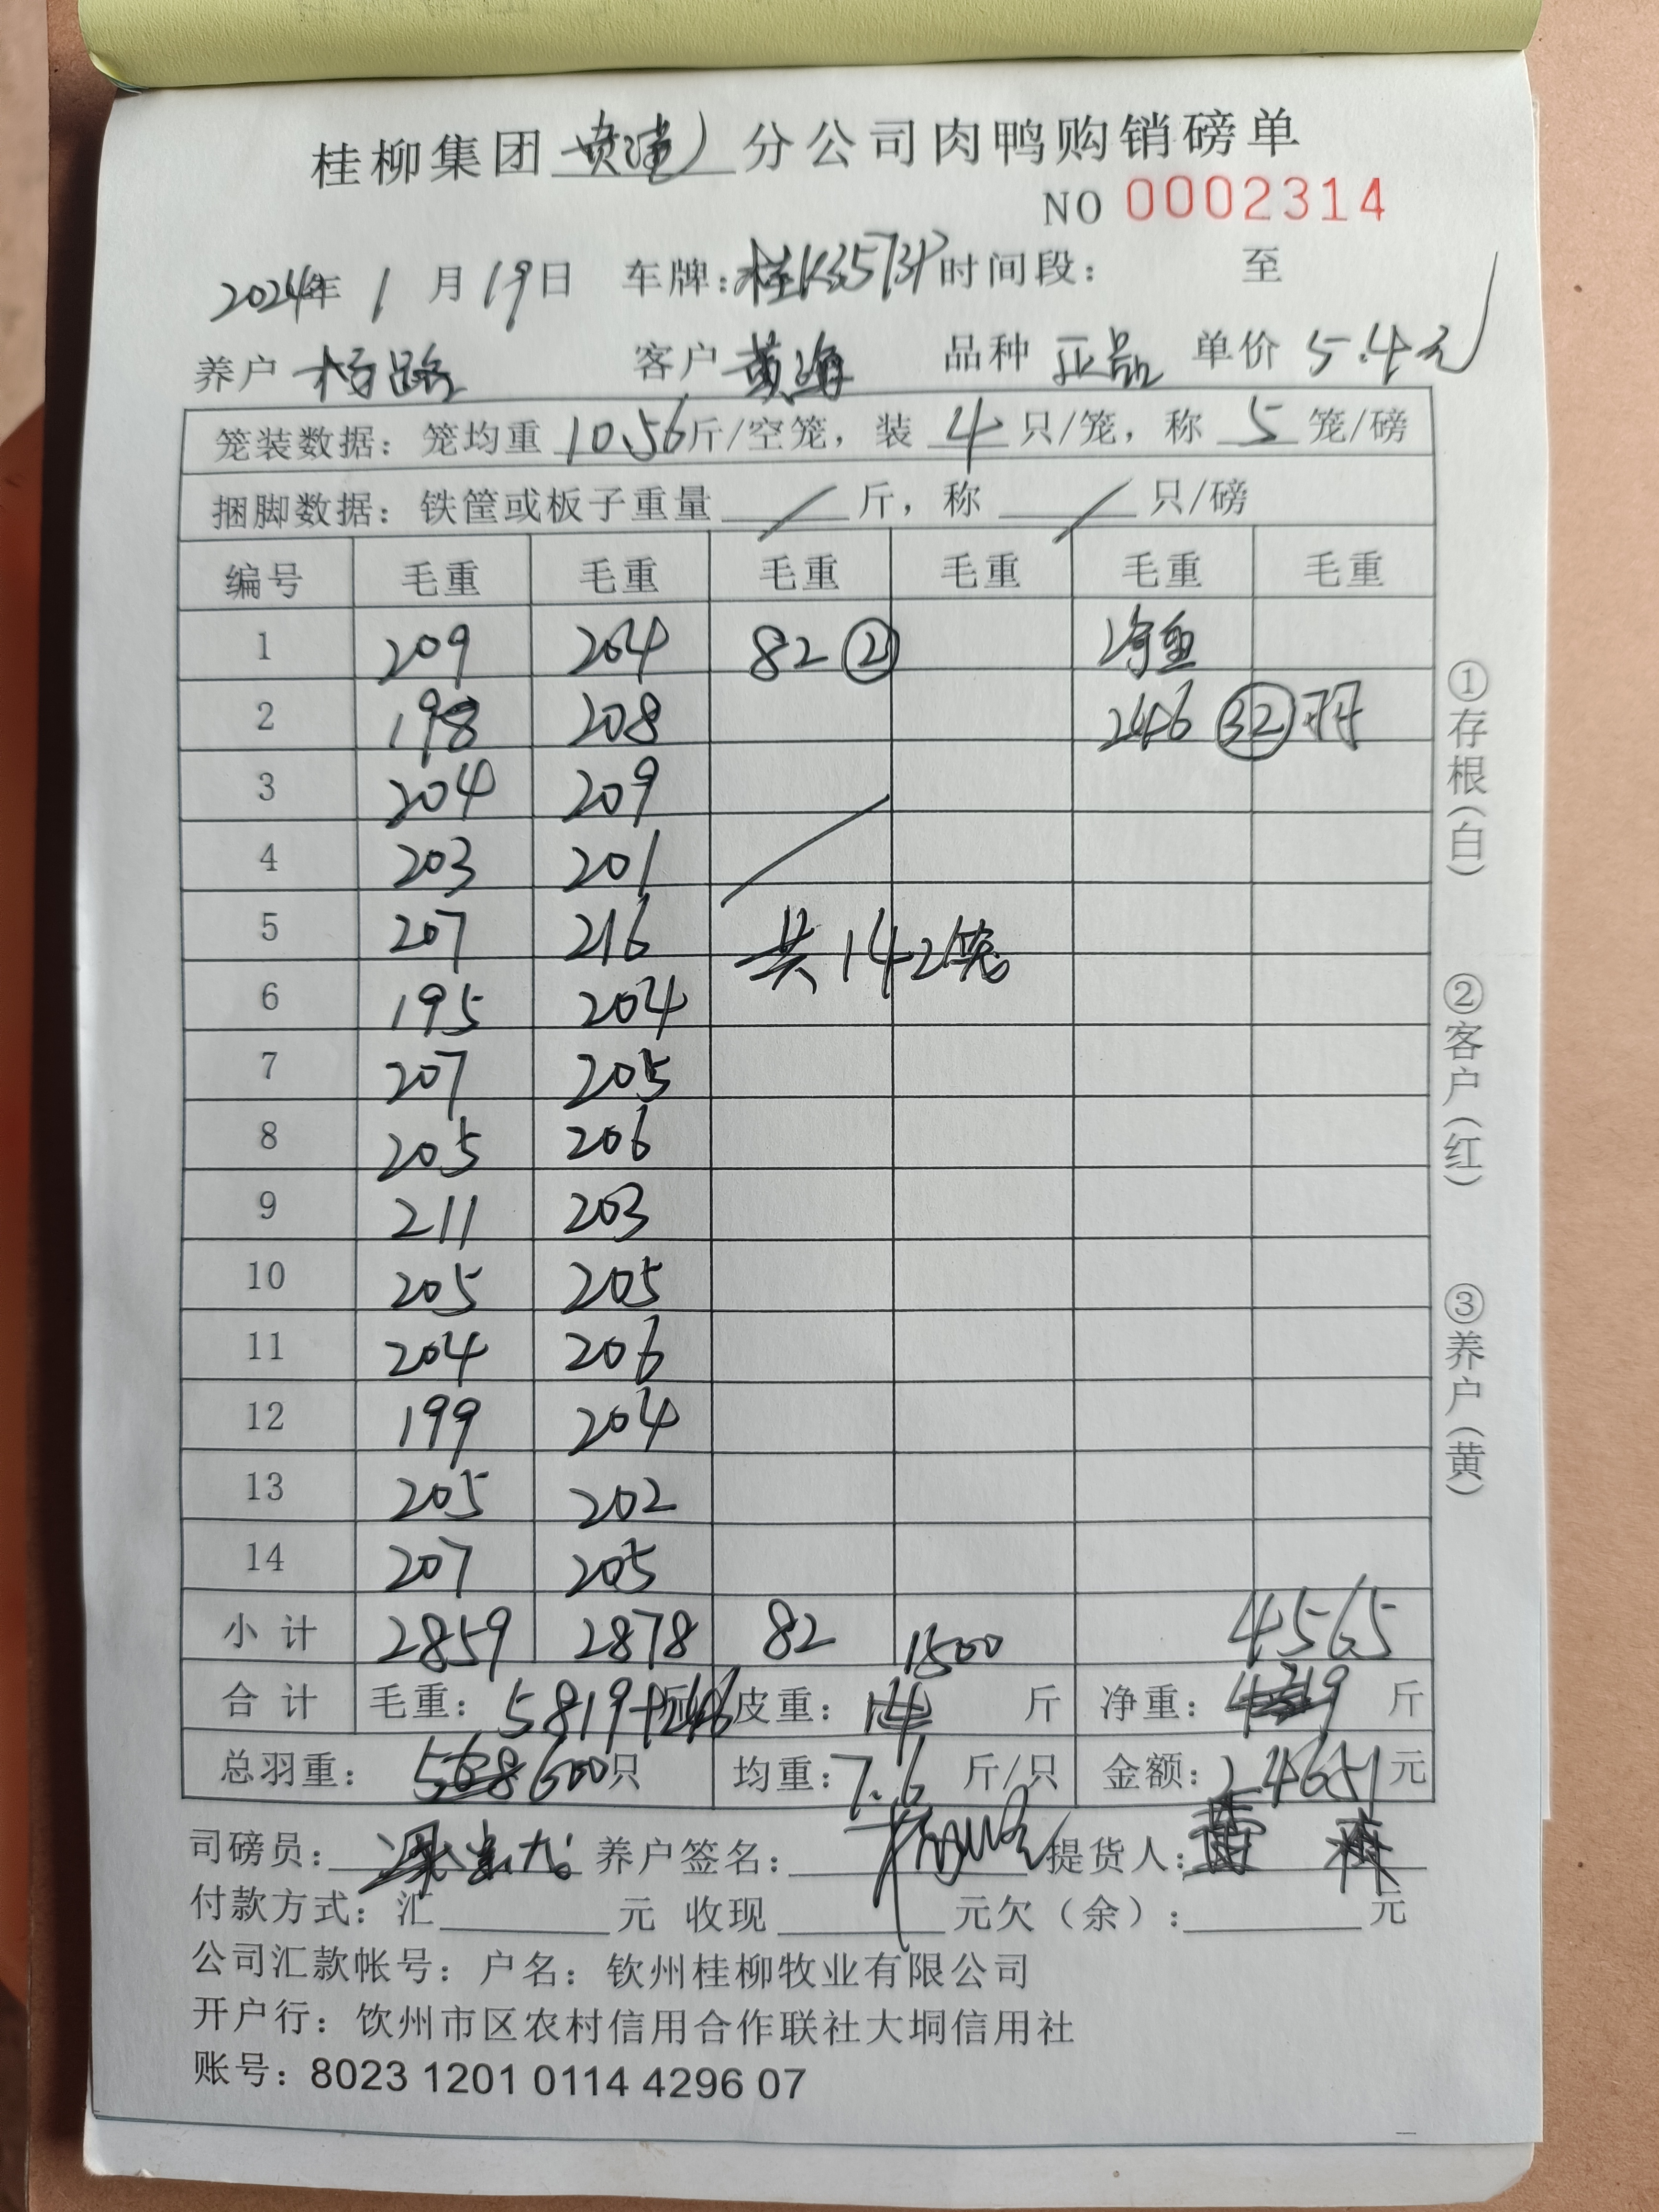 桂柳集团 黄漕 分公司肉鸭购销磅单
NO 0002314
2024年 1 月 19日 车牌:桂K3573P 时间段: 至
养户 杨路 客户 黄海 品种 正品 单价 5.4元
笼装数据: 笼均重 10.56斤/空笼, 装 4 只/笼, 称 5 笼/磅
捆脚数据: 铁筐或板子重量 / 斤, 称 / 只/磅
编号 毛重 毛重 毛重 毛重 毛重 毛重
1 209 204 82 ② 净重
2 198 208 246 ㉜羽
3 204 209
4 203 201
5 207 216 共142笼
6 195 204
7 207 205
8 205 206
9 211 203
10 205 205
11 204 206
12 199 204
13 205 202
14 207 205
小计 2859 2878 82 1500 4565
合计 毛重: 5819+246 皮重: 斤 净重: 斤
总羽重: 568 600只 均重:7.6 斤/只 金额: 24651元
司磅员: 养户签名: 提货人:
付款方式: 汇 元 收现 元欠(余): 元
公司汇款帐号: 户名: 钦州桂柳牧业有限公司
开户行: 饮州市区农村信用合作联社大垌信用社
账号: 8023 1201 0114 4296 07
①存根(白)
②客户(红)
③养户(黄)